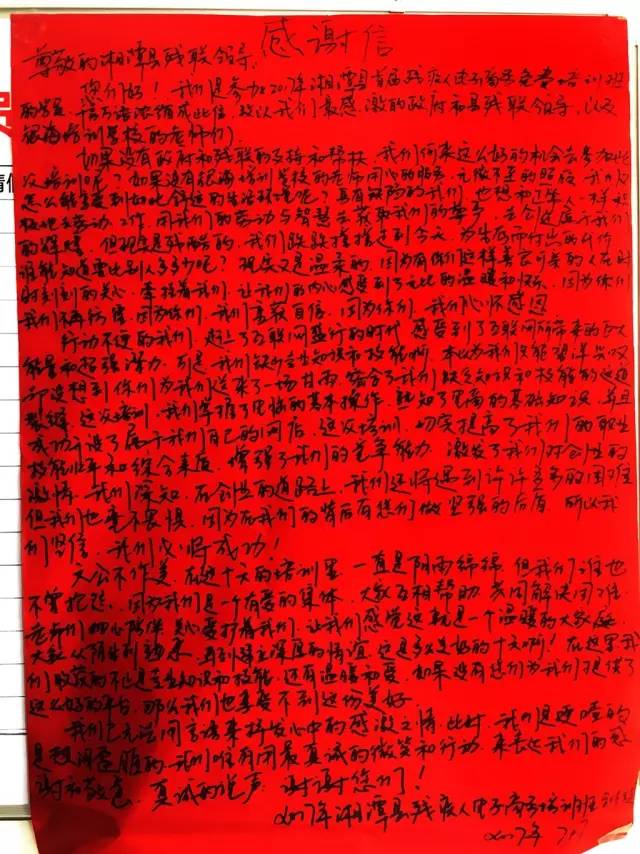 感谢信
尊敬的湘潭县残联领导:
您们好!我们是参加2017年湘潭县首届残疾人电子商务免费培训班
的学员,千言万语浓缩成此信,致以我们最感激的政府和县残联领导,以及
银海培训学校的老师们。
如果没有政府和残联的支持和帮扶,我们何来这么好的机会去参加此
次培训呢?如果没有银海培训学校的老师用心的服务,无微不至的照顾,我们又
怎么能享受到如此舒适的生活环境呢?具有缺陷的我们,也想和正常人一样积
极地去劳动、工作,用我们的劳动与智慧去获取我们的尊严,去创造属于我们
的辉煌。但现实是残酷的,我们跌跌撞撞走到今天,为生活而付出的代价
谁能知道要比别人多多少呢?现实又是温柔的,因为有你们这样善良可亲的人在时
时刻刻的关心,牵挂着我们,让我们的内心感受到了无比的温暖和快乐,因为你们
我们不再彷徨,因为你们,我们重获自信,因为你们,我们心怀感恩
行动不便的我们,赶上了互联网盛行的时代,感受到了互联网所带来的巨大
能量和超强潜力,可是,我们缺少专业知识和技能啊,本以为我们只能望洋兴叹
却没想到你们为我们送来了一场甘雨,弥合了我们缺乏知识和技能的这道
裂缝。这次培训,我们掌握了电脑的基本操作,熟知了电商的基础知识,并且
成功开设了属于我们自己的网店。这次培训,切实提高了我们的职业
技能水平和综合素质,增强了我们的竞争能力,激发了我们对创业的
激情。我们深知,在创业的道路上,我们还将遇到许许多多的困难
但我们也毫不畏惧,因为在我们的背后有您们做坚强的后盾,所以我
们坚信,我们必将成功!
天公不作美,在这十天的培训里,一直是阴雨绵绵,但我们谁也
不曾抱怨,因为我们是一个有爱的集体,大家互相帮助,共同解决困难。
老师们细心陪伴,关心爱护着我们,让我们感觉这就是一个温暖的大家庭,
大家从陌生到熟悉,再到建立深厚的情谊,这是多么美好的十天啊!在这里我
们收获的不止是专业知识和技能,还有温暖和爱。如果没有您们为我们提供了
这么好的平台,那么我们也享受不到这份美好。
我们已无法用言语来抒发心中的感激之情,此时,我们是哽噎的
是想用 的,我们唯有用最真诚的微笑和行动,来表达我们的感
谢和敬意,真诚的说声:谢谢您们!
2017年湘潭县残疾人电子商务培训班
2017年